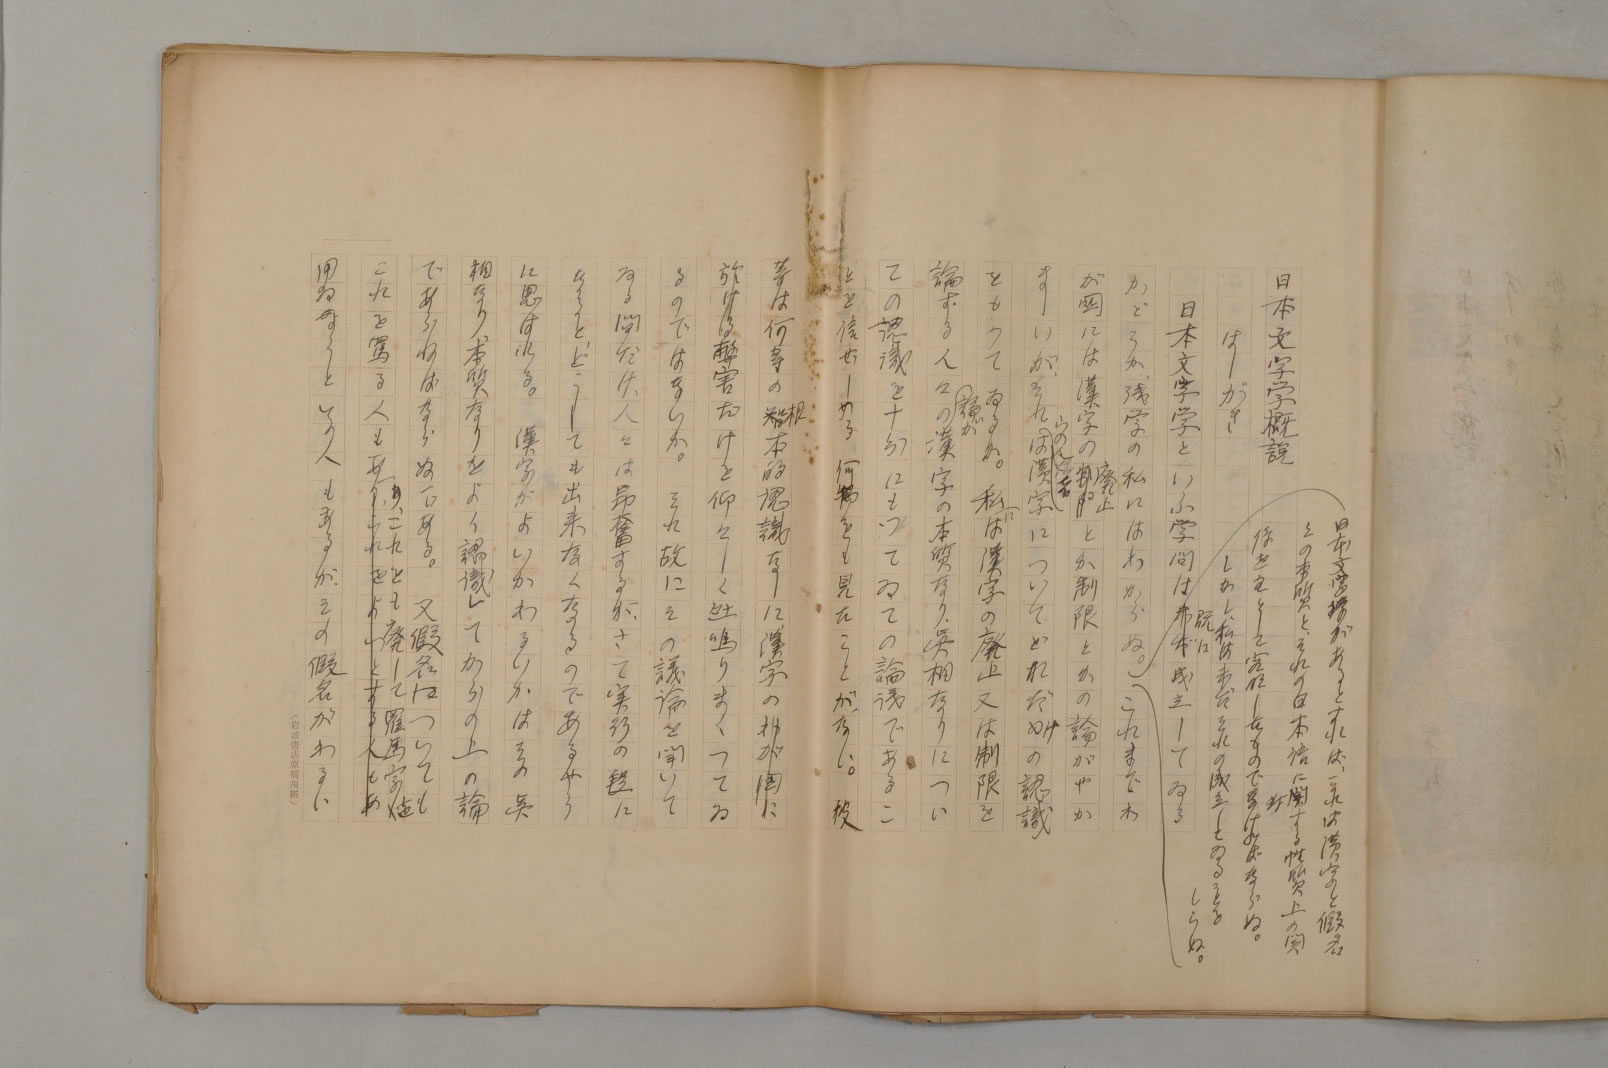 日本文字学概説
はしがき
日本文字学といふ学問は成立してゐる
かどうか、浅学の私にはわからぬ。これまでわ
が国には漢字の廃止とか制限とかの論がやか
ましいが、それらの論者は漢字についてどれだけの認識
をもつてゐるか。私は漢字の廃止又は制限を
論ずる人々が漢字の本質なり、実相なりについ
ての認識を十分にもつてゐての論議であるこ
とを信ぜしめる何物をも見たことがない。彼
等は何等の根本的認識なしに漢字のわが国に
於ける弊害だけを仰々しく吐鳴りまくつてゐ
るのではないか。それ故にその議論を聞いて
ゐる間だけ、人々は昂奮するが、さて実行の段に
なるとどうしても出来なくなるのであるやう
に思はれる。漢字がよいかわるいかはその実
相なり、本質なりをよく認識してからの上の論
であらねばならぬ。又假名についても
これを罵る人もあり、これをも廃して羅馬字の
用ゐようといふ人もあるが、その假名がわるい
日本文字学があるとすれば、それは漢字と假名
その本質と、それの日本語に対する性質上の関
係をもとして
しかし、私は既にそれの成立してゐることを
しらぬ。
(岩波書店原稿用紙)